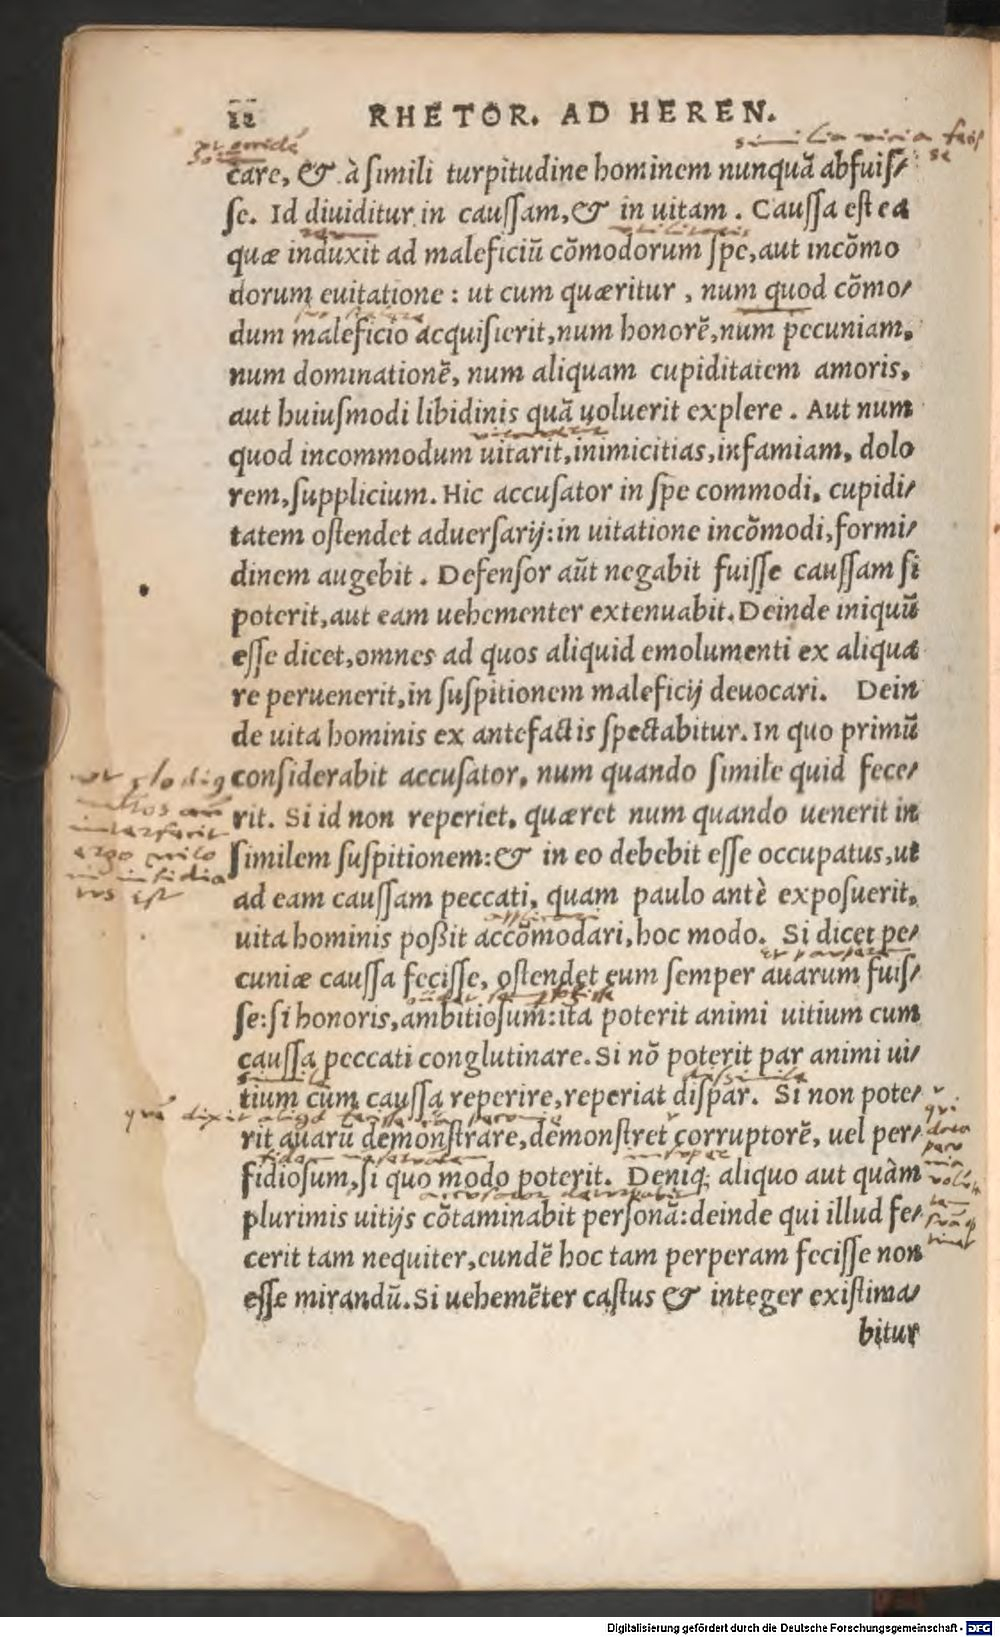 22 RHETOR. AD HEREN.
care, & à simili turpitudine hominem nunquā abfuis/
se. Id diuiditur in caussam,& in uitam. Caussa est ea
quæ induxit ad maleficiū cōmodorum spe,aut incōmo
dorum euitatione: ut cum quæritur, num quod cōmo/
dum maleficio acquisierit,num honorē,num pecuniam,
num dominationē, num aliquam cupiditatem amoris,
aut huiusmodi libidinis quā uoluerit explere. Aut num
quod incommodum uitarit,inimicitias,infamiam, dolo
rem,supplicium. Hic accusator in spe commodi, cupidi/
tatem ostendet aduersarij:in uitatione incōmodi,formi/
dinem augebit. Defensor aūt negabit fuisse caussam si
poterit,aut eam uehementer extenuabit. Deinde iniquū
esse dicet,omnes ad quos aliquid emolumenti ex aliqua
re peruenerit,in suspitionem maleficij deuocari. Dein
de uita hominis ex antefactis spectabitur. In quo primū
considerabit accusator, num quando simile quid fece/
rit. Si id non reperiet, quæret num quando uenerit in
similem suspitionem:& in eo debebit esse occupatus,ut
ad eam caussam peccati, quam paulo antè exposuerit,
uita hominis poßit accōmodari,hoc modo. Si dicet pe/
cuniæ caussa fecisse, ostendet eum semper auarum fuis/
se:si honoris,ambitiosum:ita poterit animi uitium cum
caussa peccati conglutinare. Si nō poterit par animi ui/
tium cum caussa reperire,reperiat dispar. Si non pote/
rit auarū demonstrare,demonstret corruptorē, uel per/
fidiosum,si quo modo poterit. Deniq; aliquo aut quàm
plurimis uitijs cōtaminabit personā:deinde qui illud fe/
cerit tam nequiter,eundē hoc tam perperam fecisse non
esse mirandū. Si uehemēter castus & integer existima/
bitur
Digitalisierung gefördert durch die Deutsche Forschungsgemeinschaft - DFG